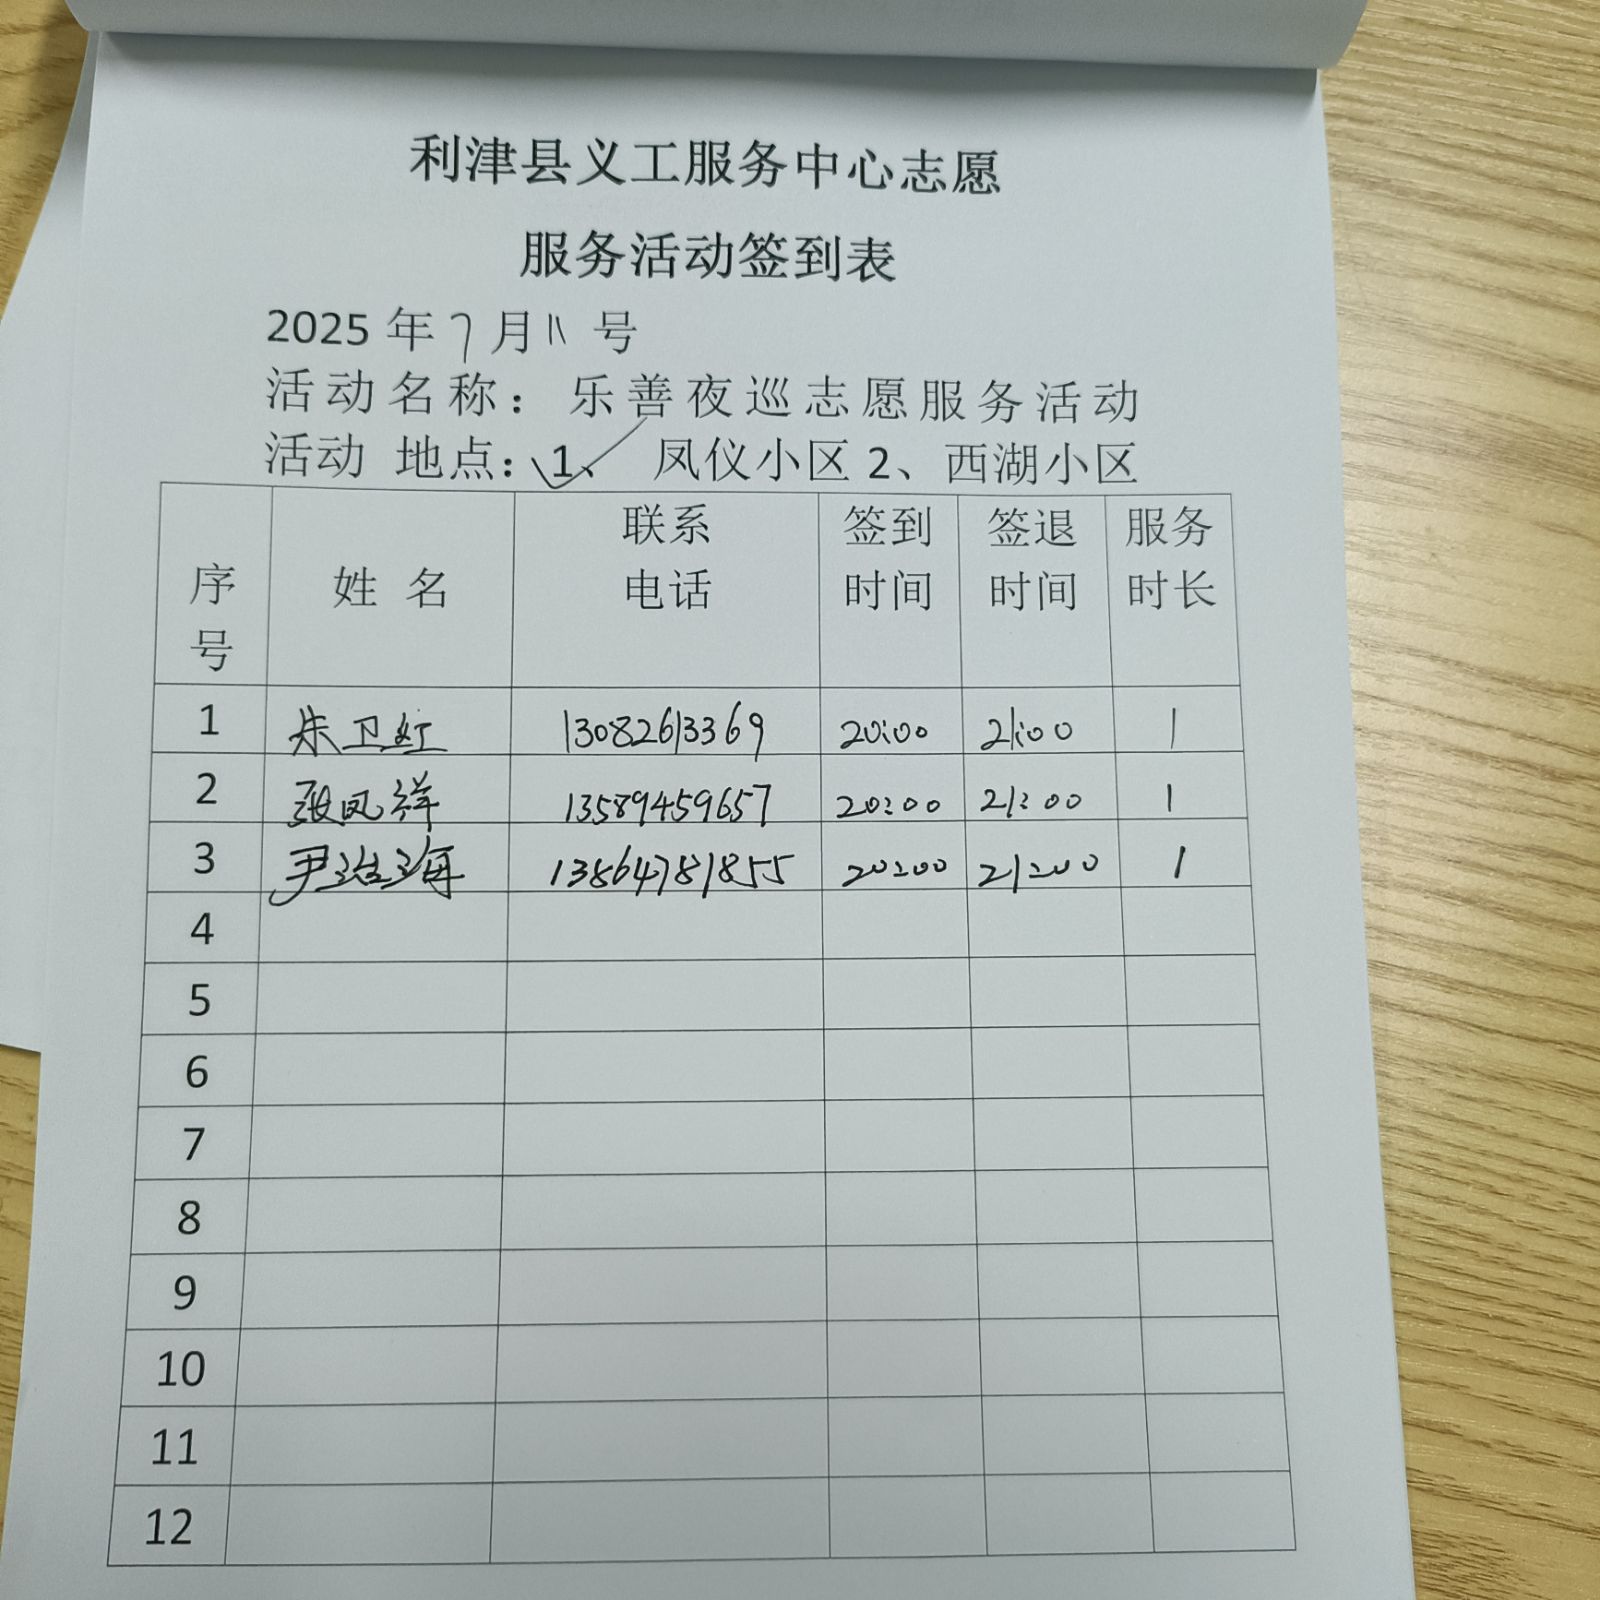 利津县义工服务中心志愿
服务活动签到表
2025 年 7 月 11 号
活动名称： 乐善夜巡志愿服务活动
活动 地点：1、 凤仪小区 2、西湖小区
序号 姓 名 联系电话 签到时间 签退时间 服务时长
1 朱卫红 13082613369 20:00 21:00 1
2 张凤祥 13589459657 20:00 21:00 1
3 尹海 13864781855 20:00 21:00 1
4
5
6
7
8
9
10
11
12